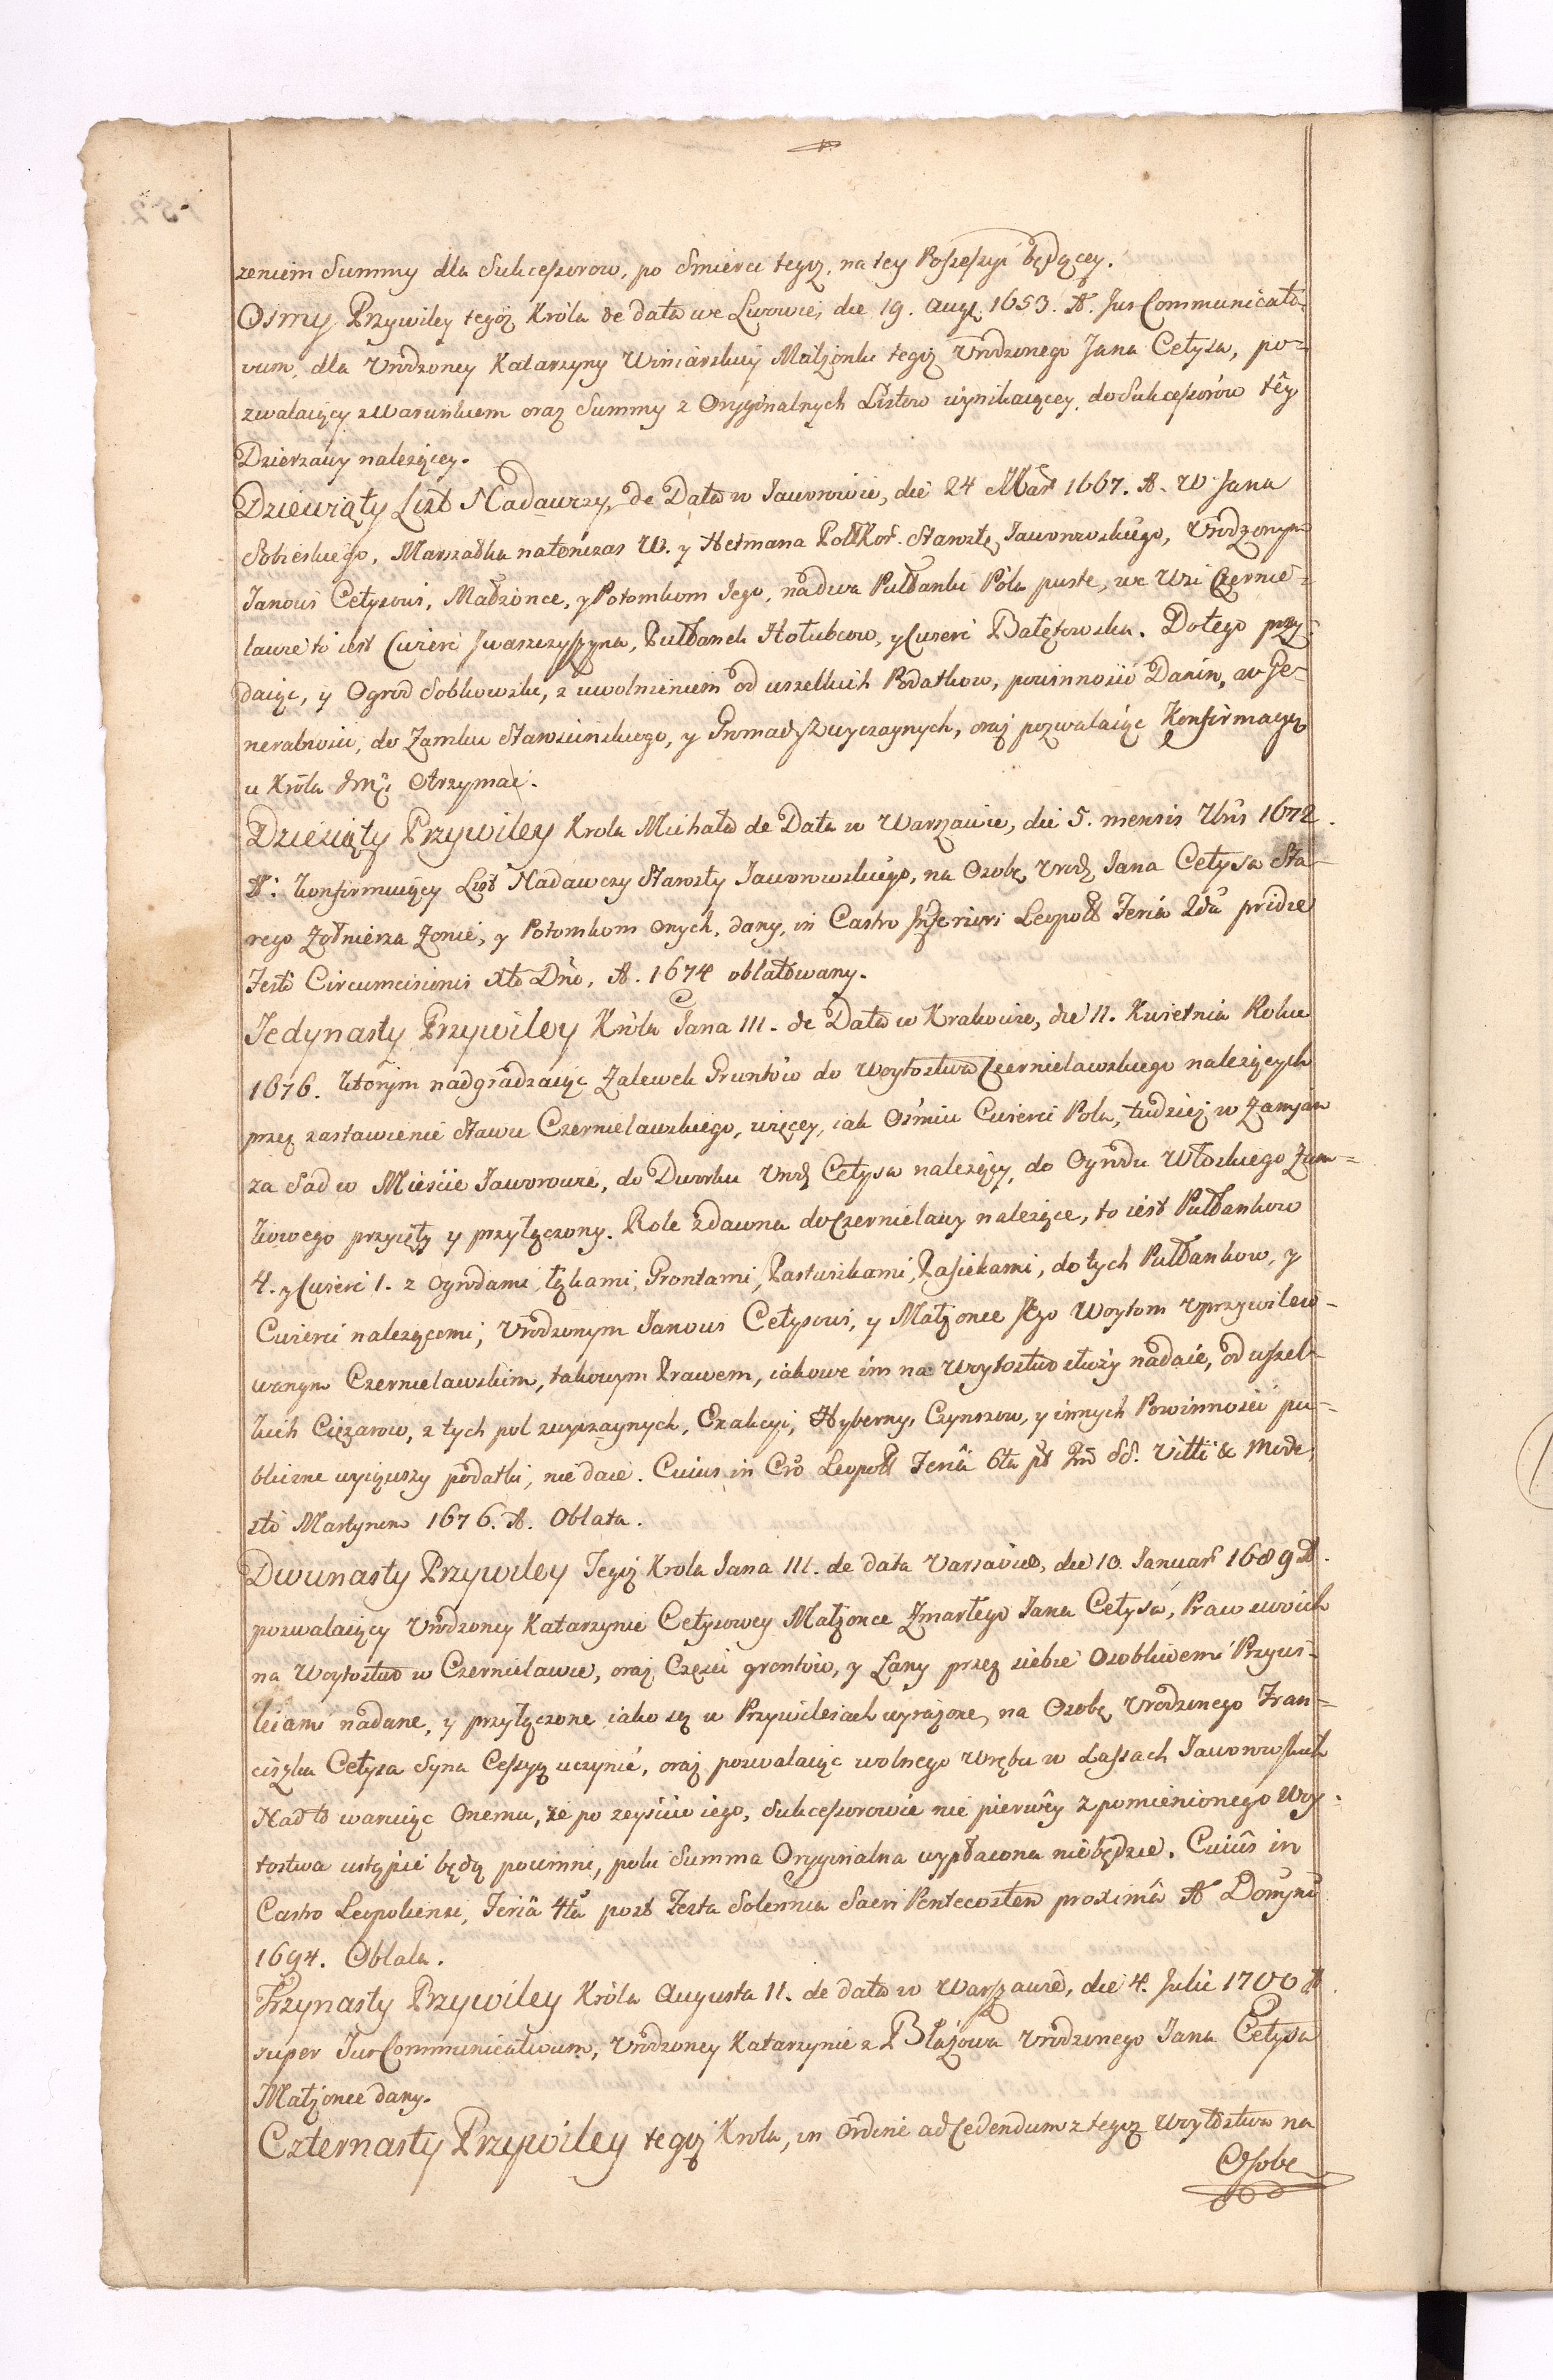 zeniem Summy dla Sukcessorow, po Smierci tegoż, na tey Possessyi będącey.
Osmy Przywiley tegoż Króla de data we Lwowie, die 19. Aug. 1653. A. Jus Communicati-
vum, dla Urodzoney Katarzyny Winiarskiey Małżonki tegoż Urodzonego Jana Cetysa, po-
zwalaiący z Warunkiem oraz Summy z Oryginalnych Listow wynikaiącey, do Sukcessorów téy
Dzierzawy należącey.
Dziewiąty List Nadawczy, de Data w Jaworowie, die 24 Mar 1667. A. W Jana
Sobieskiego, Marszałka natenczas W. y Hetmana Pol Kor. Starostę Jaworowskiego, Urodzonym
Janowi Cetysowi, Małżonce, y Potomkom Jego, na dwa Pułłanki Pola puste, we Wsi Czernie-
lawie to iest Cwierć Iwaszczyszyna, Pułłanek Hołubcow, y Cwierć Bałętowska. Do tego przy-
daiąc, y Ogrod Sobkowski, z uwolnieniem od wszelkich Podatkow, powinnosci Danin, a w Ge-
neralnosci, do Zamku Starościnskiego, y Gromady Zwyczaynych, oraz pozwalaiąc Konfirmacyą
u Króla Jmći Otrzymać.
Dziesiąty Przywiley Krola Michała de Data w Warszawie, die 5. mensis Xbris 1672.
A: konfirmuiący List Nadawczy Starosty Jaworowskiego, na Osobę Urodz Jana Cetysa Sta-
rego Żołnierza Żonie, y Potomkom Onych, dany, in Castro Inferiori Leopol Feria 2da pridie
Festi Circumcisionis Xti Dni, A. 1674 oblatowany.
Jedynasty Przywiley Króla Jana III. de Data w Krakowie, die 11. Kwietnia Roku
1676. którym nadgradzaiąc Zalewek Gruntów do Woytostwa Czernielawskiego należących
przez zastawienie Stawu Czernielawskiego, więcey, iak Osmiu Cwierci Pola, tudziez w Zamian
za Sad w Mieście Jaworowie, do Dworku Urodz Cetysa należący, do Ogrodu Włoskiego Zam-
kowego przyięty y przyłączony. Role zdawna do Czernielawy należące, to iest Pułłankow
4. y Cwierć 1. z Ogrodami, łąkami, Grontami, Pastwiskami, Pasiekami, do tych Pułłankow, y
Cwierci należącemi; Urodzonym Janowi Cetysowi, y Małżonce Jego Woytom uprzywilew-
wanym Czernielawskim, takowym Prawem, iakowe im na Woytostwo służy nadaie, od wszel-
kich Ciężarow, z tych pol zwyczaynych, Exakcyi, Hyberny, Czynszow, y innych Powinnosci pu-
bliczne wyiąwszy podatki, nie daie. Cuius in Cro Leopol Feria 6ta pt Fm SS. Viti & Mode-
sti Martyrum 1676. A. Oblata.
Dwunasty Przywiley Tegoż Krola Jana III. de data Varsaviae, die 10. Januar 1689 A.
pozwalaiący Urodzoney Katarzynie Cetysowey Małżonce Zmarłego Jana Cetysa, Praw swoich
na Woytostwo w Czernielawie, oraz Częsci grontów, y Łany przez siebie Osobliwemi Przywi-
leiami nadane, y przyłączone iako są w Przywileiach wyrażone, na Osobę Urodzonego Fran-
ciszka Cetysa Syna Cessyą uczynić, oraz pozwalaiąc wolnego Wrębu w Lassach Jaworowskich
Nad to waruiąc Onemu, że po zeyściu iego, Sukcessorowie nie pierwéy z pomienionego Woy-
tostwa ustąpić będą powinni, poki Summa Oryginalna wypłacona nie będzie. Cuius in
Castro Leopoliensi, Feria 4ta post Festa Solennia Sacri Pentecosten proxima A Domini
1694. Oblata.
Trzynasty Przywiley Króla Augusta II. de data w Warszawie, die 4. Julii 1700 A.
super Jus Communicativum, Urodzoney Katarzynie z Błażowa Urodzonego Jana Cetysa
Małżonce dany.
Czternasty Przywiley tegoż Krola, in Ordine ad Cedendum z tegoż Woytostwa na
Osobę